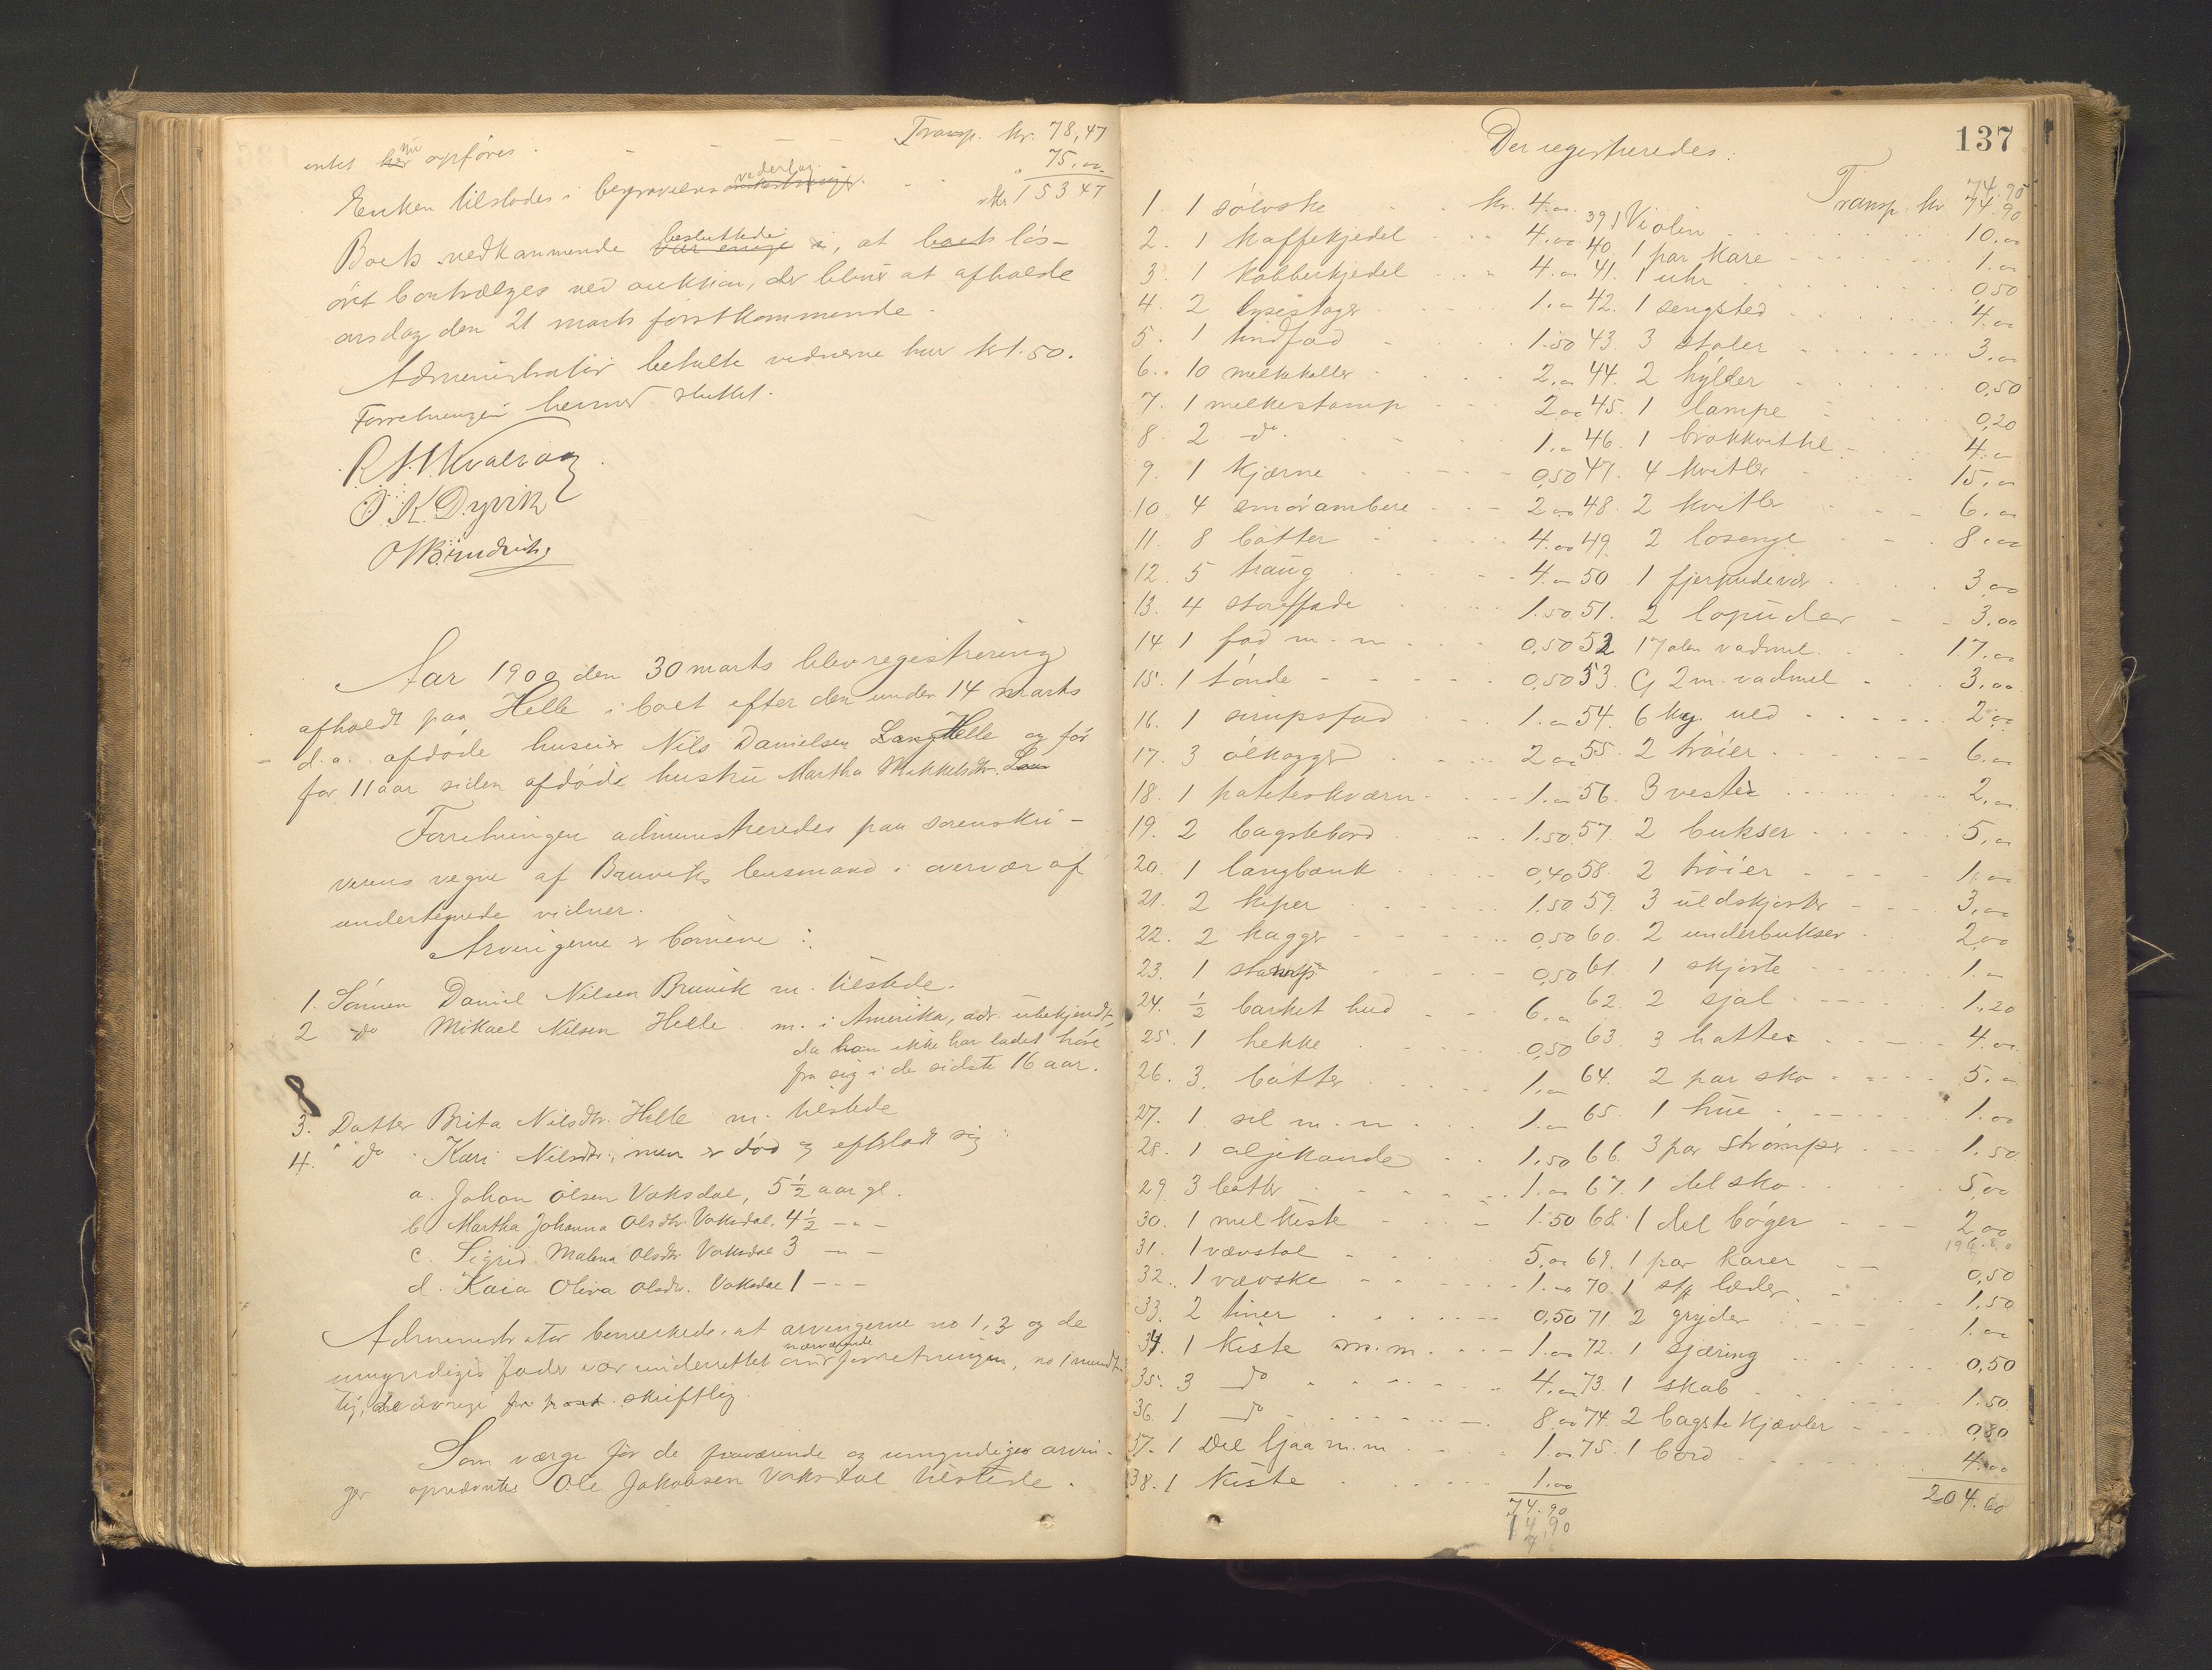 Transp. kr. 78,47
enket her nu opføres.
75,00
Enken tilstodes i begravelses vederlag
kr 153 47
Boets vedkommende besluttede, at boets løs-
øre bortsælges ved auktion, der bliver at afholde
onsdag den 21 marts førstkommende.
Administrator betalte vidnerne hver kr 1.50.
Forretningen hermed sluttet.
O. K. Dyvik
Aar 1900 den 30 marts blev registrering
afholdt paa Helle i boet efter den under 14 marts
d.a. afdøde huseier Nils Danielsen Helle og for
for 11 aar siden afdøde hustru Martha Mikkelsdtr.
Forretningen administreredes paa sorenskri-
verens vegne af Bruviks lensmand i overvær af
undertegnede vidner.
Arvingerne er børnene:
1. Sønnen Daniel Nilsen Bruvik m. tilstede.
2 do Mikael Nilsen Helle m. i Amerika, adr. ubekjendt,
da han ikke har ladet høre
fra sig i de sidste 16 aar.
8
3. Datter Brita Nilsdtr. Helle m. tilstede
4. " do Kari Nilsdtr., men er død og efterlod sig:
a. Johan Olsen Vaksdal, 5 1/2 aar gl.
b. Martha Johanna Olsdtr. Vaksdal, 4 1/2 - " -
c. Sigrid Malena Olsdtr Vaksdal 3 - " -
d. Kaia Oliva Olsdtr. Vaksdal 1 - - -
Administrator bemerkede, at arvingerne no 1, 3 og de
umyndiges fader var underrettet om nærværende forretningen, no 1 mundt-
lig, de øvrige skriftlig.
Som værge for de fraværende og umyndiges arvin-
ger opnævntes Ole Jakobsen Vaksdal tilstede.
137
Der registreredes:
1. 1 sølvske kr. 4.00
2. 1 kaffekjedel 4.00
3 1 kobberkjedel 4.00
4. 2 lysestager 1.00
5. 1 tindfad 1.50
6. 10 melkekoller 2.00
7. 1 melkestamp 2.00
8. 2 do 1.00
9. 1 kjærne 0,50
10. 4 smørambere 2.00
11. 8 bøtter 4.00
12. 5 traug 4.00
13. 4 stenfade 1.50
14. 1 fad m.m. 0,50
15. 1 tønde 0,50
16. 1 sirupsfad 1.00
17. 3 ølkagger 2.00
18. 1 poteteskværn 1.00
19. 2 bagstebord 1.50
20. 1 langbænk 0,40
21. 2 kiper 1.50
22. 2 kagger 0,50
23. 1 stamp 0,50
24. 1/2 barket hud 6.00
25. 1 hekke 0,50
26. 3. bøtter 1.00
27. 1 sil m.m. 1.00
28. 1 oljekande 1,50
29 3 bøtter 1.00
30. 1 melkiste 1.50
31. 1 vævstol 5.00
32. 1 vævske 1.00
33. 2 tiner 0,50
34. 1 kiste m.m. 1.00
35. 3 do 4.00
36. 1 do 8.00
37. 1 Del ljaa m.m 1.00
38. 1 kiste 1.00
74.90
74,90
Transp. kr 74.90
39 1 Violin 10.00
40. 1 par kare 1.00
41. 1 uhr 0,50
42. 1 sengsted 4.00
43. 3 stoler 3.00
44. 2 hylder 0,50
45. 1 lampe 0,20
46. 1 4.00
47. 4 kvitler 15.00
48. 2 kvitler 6.00
49. 2 losenge 8.00
50 1 fjerpudevær 3,00
51. 2 lopuder 3.00
52 17 alen vadmel 17.00
53. 2 m. vadmel 3.00
54. 6 kg. uld 2.00
55. 2 trøier 6.00
56. 3 vester 2.00
57. 2 bukser 5.00
58. 2 trøier 1.00
59. 3 uldskjorter 3.00
60. 2 underbukser 2,00
61. 1 skjorte 1.00
62. 2 sjal 1.20
63. 3 hatter 4.00
64. 2 par sko 5.00
65. 1 hue 1.00
66. 3 par strømper 1.50
67. 1 del sko 5,00
68. 1 del bøger 2,00
196.80
69. 1 par karer 0,50
70. 1 stk læder 1,50
71. 2 gryder 1.00
72. 1 sjæring 0,50
73. 1 skab 1.50
74. 2 bagstekjævler 0,80
75. 1 bord 4.00
204.60